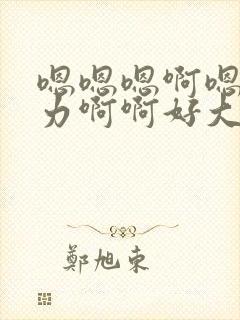 嗯嗯嗯啊嗯
力啊啊好大
鄭旭东